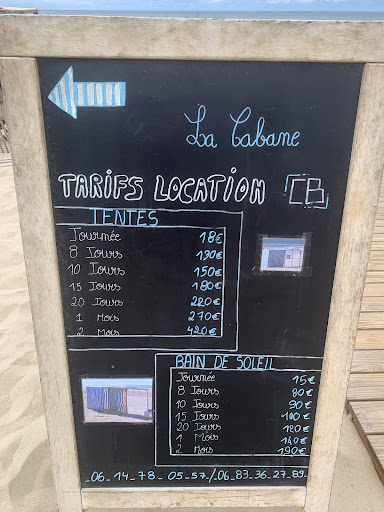 La Cabane
TARIFS LOCATION CB
TENTES
Journée 18€
8 Jours 130€
10 Jours 150€
15 Jours 180€
20 Jours 220€
1 Mois 270€
2 Mois 420€
BAIN DE SOLEIL
Journée 15€
8 Jours 80€
10 Jours 90€
15 Jours 100€
20 Jours 120€
1 Mois 140€
2 Mois 190€
_06_14_78_05_57_/_06_83_36_27_89_